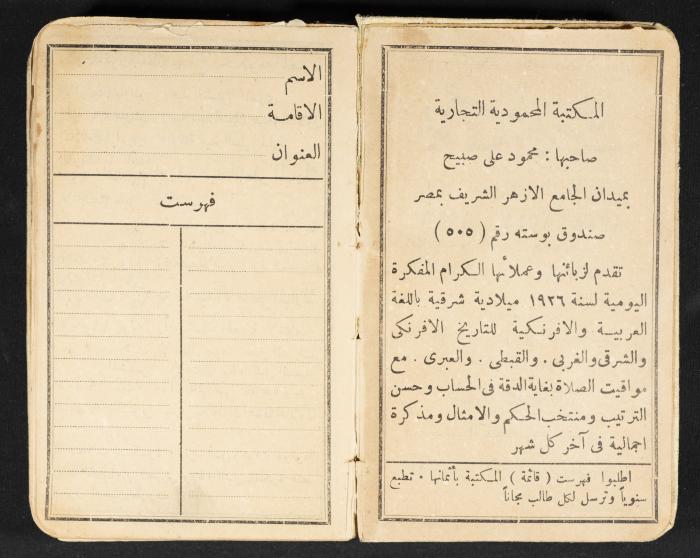 المكتبة المحمودية التجارية
صاحبها : محمود على صبيح
بميدان الجامع الازهر الشريف بمصر
صندوق بوسته رقم ( ٥٠٥ )
تقدم لزبائنها وعملائها الكرام المفكرة
اليومية لسنة ١٩٢٦ ميلادية شرقية باللغة
العربية والافرنكية للتاريخ الافرنكى
والشرقى والغربى . والقبطى . والعبرى . مع
مواقيت الصلاة بغاية الدقة فى الحساب وحسن
الترتيب ومنتخب الحكم والامثال ومذكرة
اجمالية فى آخر كل شهر
اطلبوا فهرست ( قائمة ) المكتبة بأثمانها . تطبع
سنوياً وترسل لكل طالب مجاناً
الاسم
الاقامة
العنوان
فهرست